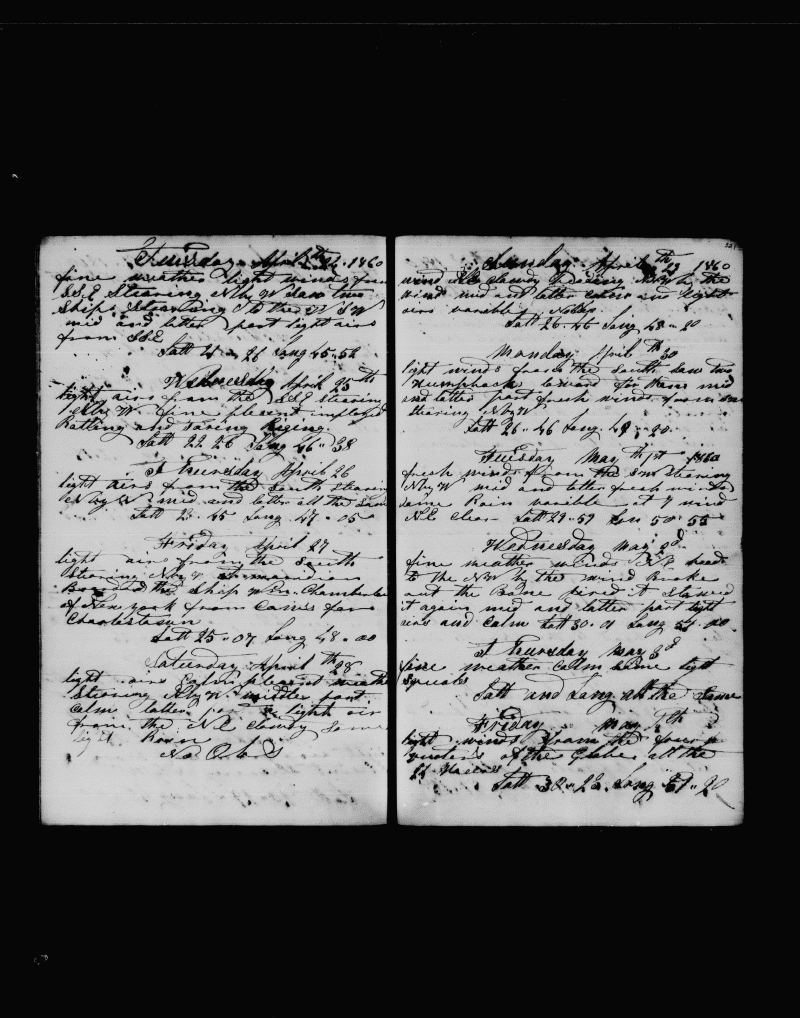 Tuesday April 24th 1860
fine weather light winds from
SSE Stearing N by W Saw two
Ships Stearing to the W S W
mid and latter part light airs
from SSE
Latt 21 " 26 Long 45 " 52
Wednesday April 25th
light airs from the SSE Stearing
N by W. fine plesent imployed
Ratling and taring Riging
Latt 22 26 Long 46 " 38
Thursday April 26
light airs from the South Stearing
N by W mid and latter all the Same
Latt 23 " 45 Long 47 " 05
Friday April 27
light airs from the South
Stearing N by W at
the Ship Wm Chambers
of New york from
Charlestown
Latt 25 " 07 Long 48 " 00
Saturday April 28th
light airs Calm plesent weather
Stearing N by W middle part
Calm latter part light air
from the N E Cloudy Some
light Rain
No Obs
Sunday April 29th 1860
wind by the
wind mid and latter calm and light
airs varible
Latt 26 " 46 Long 48 " 20
Monday April 30th
light winds from the South Saw two
Humpback lowered for them mid
and latter part fresh winds from
Stearing N by W
Latt 26 " 46 Long 49 " 20
Tuesday May 1st 1860
fresh winds from the SW Stearing
N by W mid and latter fresh winds
Same Rain varible at 7 wind
N E Clear Latt 29 " 59 Lon 50 " 55
Wednesday May 2d
fine weather winds N E heads
to the NW by the wind Broke
out the Bone
it again mid and latter part light
airs and Calm Latt 30 " 01 Long 51 " 00
Thursday May 3d
fine weather Calm Some light
Squalls
Latt and Long all the Same
Friday May 4th
light winds from the four
quarters of the Globe all the
24 hours
Latt 30 " 23 Long 51 " 20